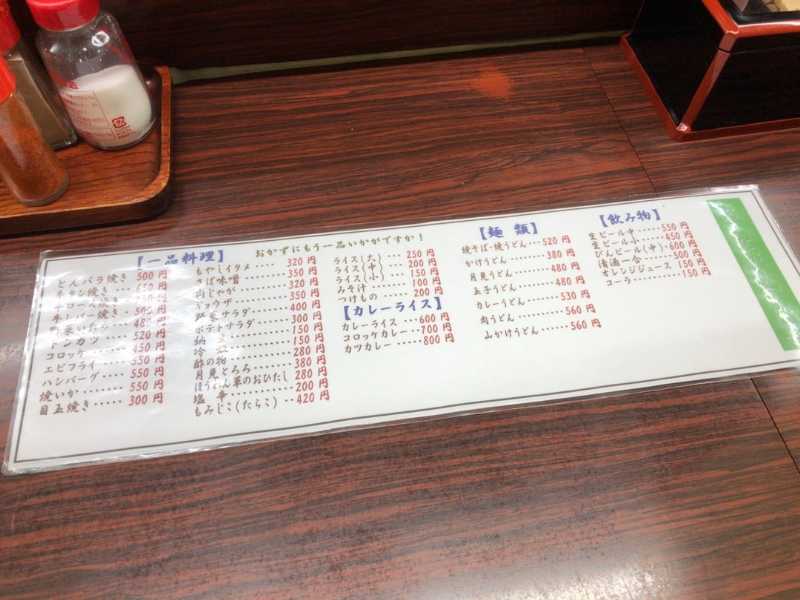 おかずにもう一品いかがですか！
【一品料理】
とんバラ焼き 500円
チキン焼き
野菜いため 480円
トンカツ 520円
コロッケ 450円
エビフライ 550円
ハンバーグ 550円
焼いか 550円
目玉焼き 300円
もやしイタメ 320円
さば味噌 350円
肉じゃが 350円
ギョウザ 400円
野菜サラダ 300円
ポテトサラダ 150円
納 150円
冷 280円
酢の物 380円
月見とろろ 280円
ほうれん草のおひたし
塩辛 200円
もみじこ(たらこ) 420円
ライス(大) 250円
ライス(中) 200円
ライス(小) 150円
みそ汁 100円
つけもの 200円
【カレーライス】
カレーライス 600円
コロッケカレー 700円
カツカレー 800円
【麺類】
焼そば・焼うどん 520円
かけうどん 380円
月見うどん 480円
玉子うどん 480円
カレーうどん 530円
肉うどん 560円
山かけうどん 560円
【飲み物】
生ビール中 550円
生ビール小 450円
びんビール(中) 600円
清酒一合 500円
オレンジジュース 150円
コーラ 150円